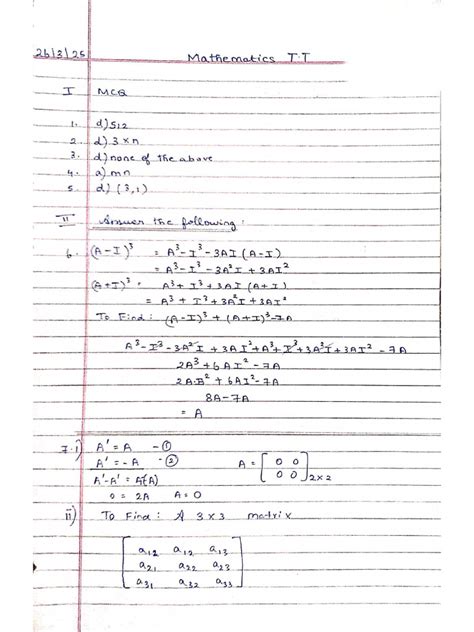 26/3/25 Mathematics T.T
I MCQ
1. d) 512
2. d) 3 x n
3. d) none of the above
4. a) mn
5. d) (3,1)
II Answer the following:
6. (A-I)³ = A³-I³-3AI(A-I)
= A³-I³-3A²I+3AI²
(A+I)³ = A³+I³+3AI(A+I)
= A³+I³+3A²I+3AI²
To Find: (A-I)³+(A+I)³-7A
A³-I³-3A²I+3AI²+A³+I³+3A²I+3AI²-7A
2A³+6AI²-7A
2A.B²+6AI²-7A
8A-7A
= A
7. i) A' = A -①
A' = -A -② A = [0 0
0 0]2x2
A'-A' = A-(-A)
0 = 2A A=0
ii) To Find: A 3x3 matrix
a12 a12 a13
a21 a22 a23
a31 a32 a33